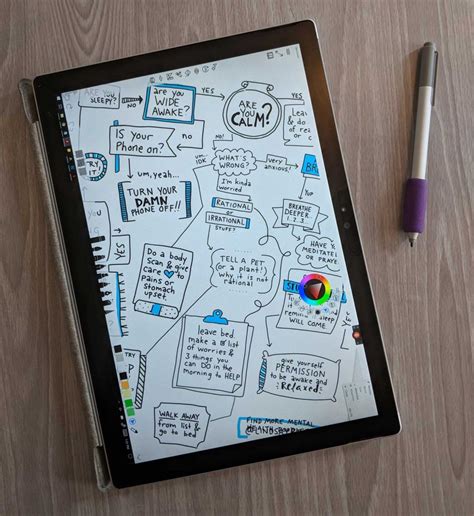 ARE YOU
SLEEPY?
NO
are you
WIDE
AWAKE?
YES
ARE
YOU
CALM?
YES
do
of
Is your
Phone on?
no
um, yeah...
TURN YOUR
DAMN
PHONE OFF!!
um,
IDK
WHAT'S
WRONG?
very
anxious!
I'm kinda
worried
YUP
RATIONAL
or
IRRATIONAL
STUFF?
BREATHE
DEEPER.
1..2..3..
TRY
IT!
YES
Do a body
scan & give
care
to
pains or
stomach
upset.
TELL A PET
(or a plant!)
why it is
not
rational
HAVE
MEDITATE
or PRAYE
WILL COME
leave bed
make a list
of worries &
3 things you
can DO in the
morning to HELP
give yourself
PERMISSION
to be awake and
Relaxed
WALK AWAY
from list &
go to bed
FIND MORE MENTAL